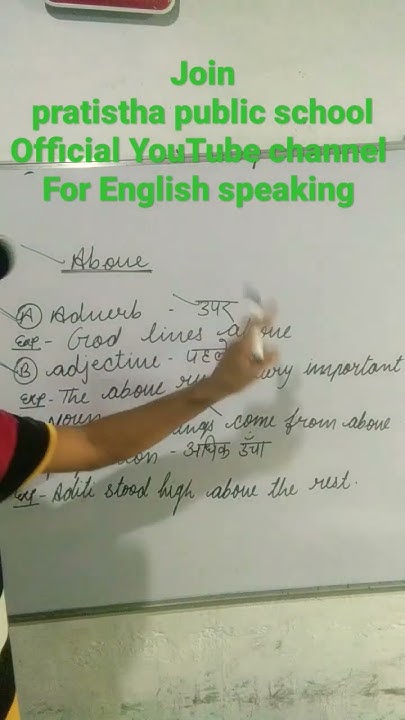 Join
pratistha public school
Official YouTube channel
For English speaking
Above
(A) Adverb - उपर
Exp - God lives above
(B) adjective - पहले
Exp - The above very important
noun come from above
अधिक ऊँचा
Exp - Aditi stood high above the rest.